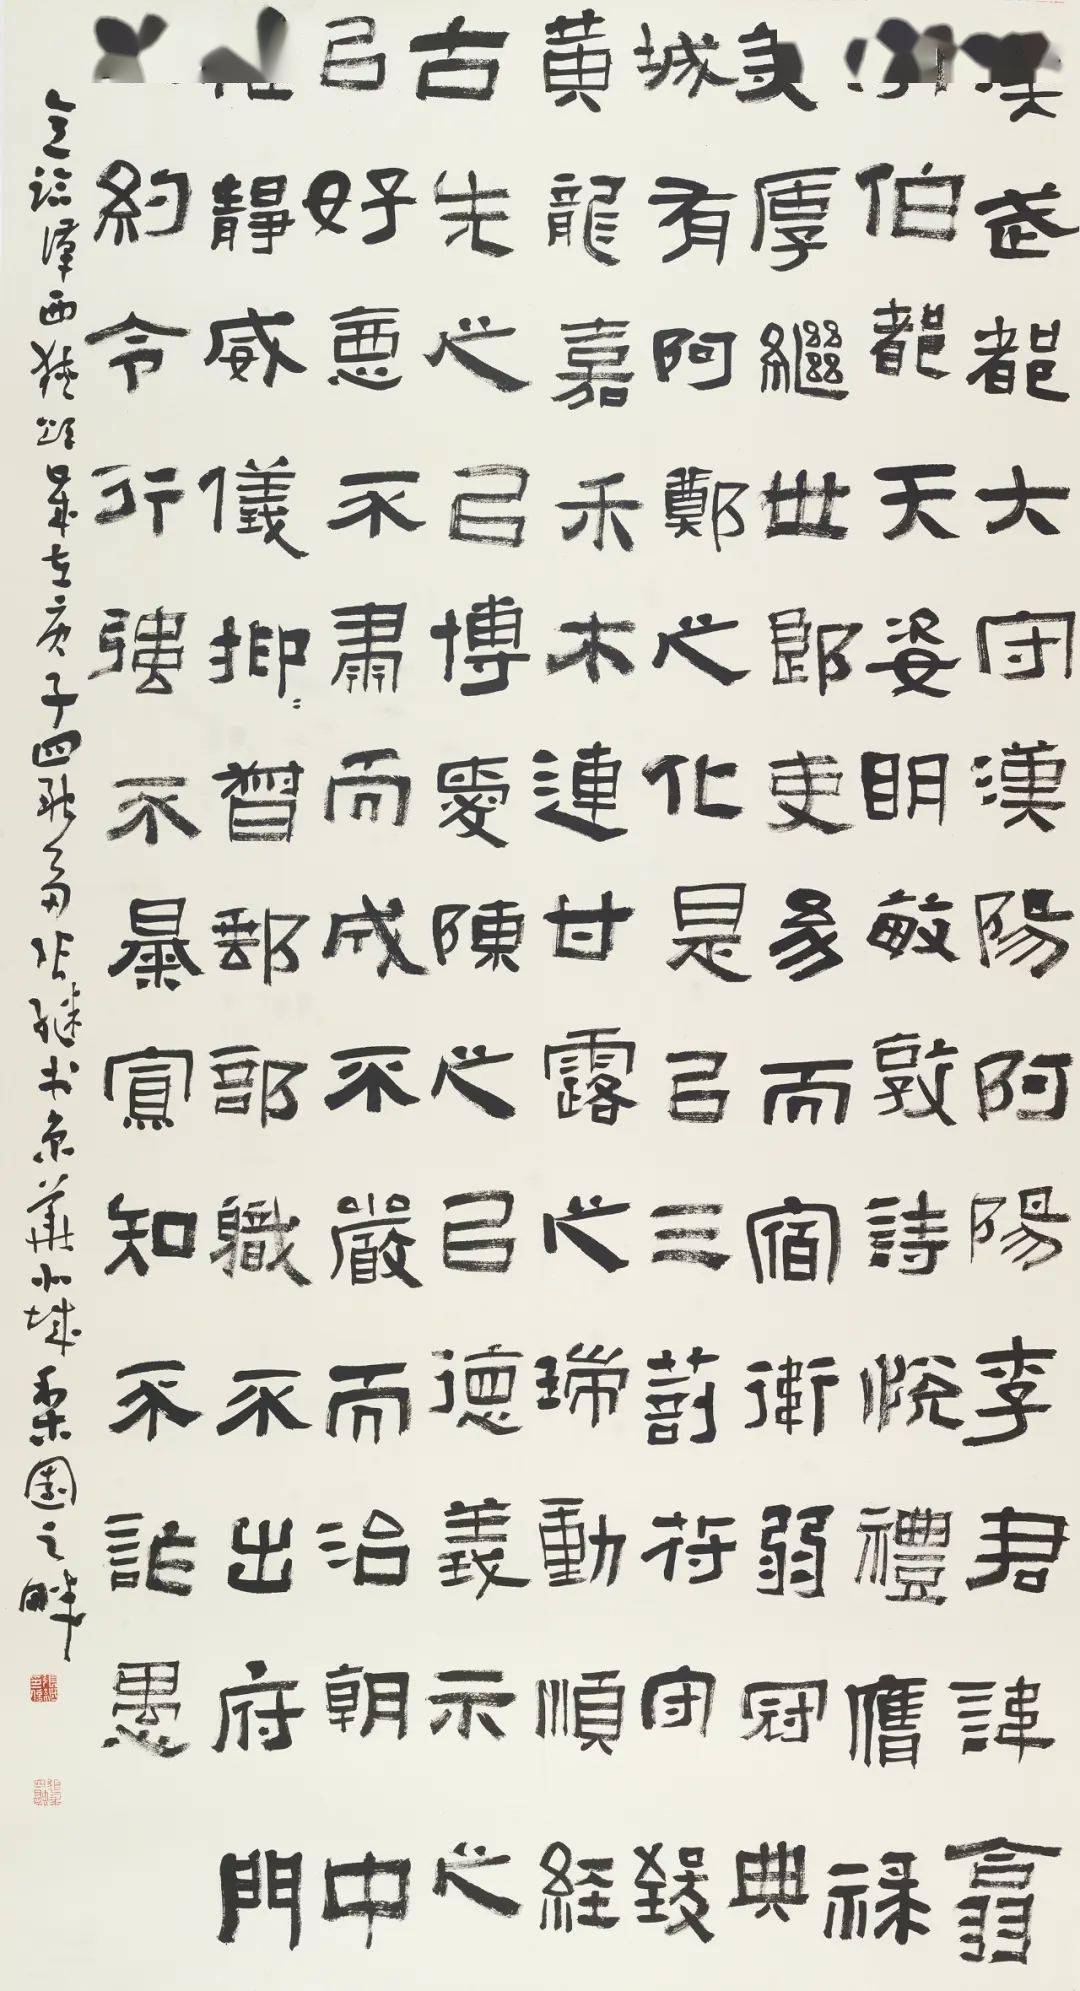 漢武都大守漢陽阿陽李君諱翕
伯都天姿明敏敦詩悅禮膺祿
美厚繼世郎吏幼而宿衛弱冠典
城有阿鄭之化是以三剖符守致
黃龍嘉禾木連甘露之瑞動順經
古先之以博愛陳之以德義示之
以好惡不肅而成不嚴而治朝中
惟靜威儀抑〻督郵部職不出府門
約令行強不暴寡知不詐愚
意臨漢西狹頌歲在庚子四融齋張繼書京華北城梨園之畔